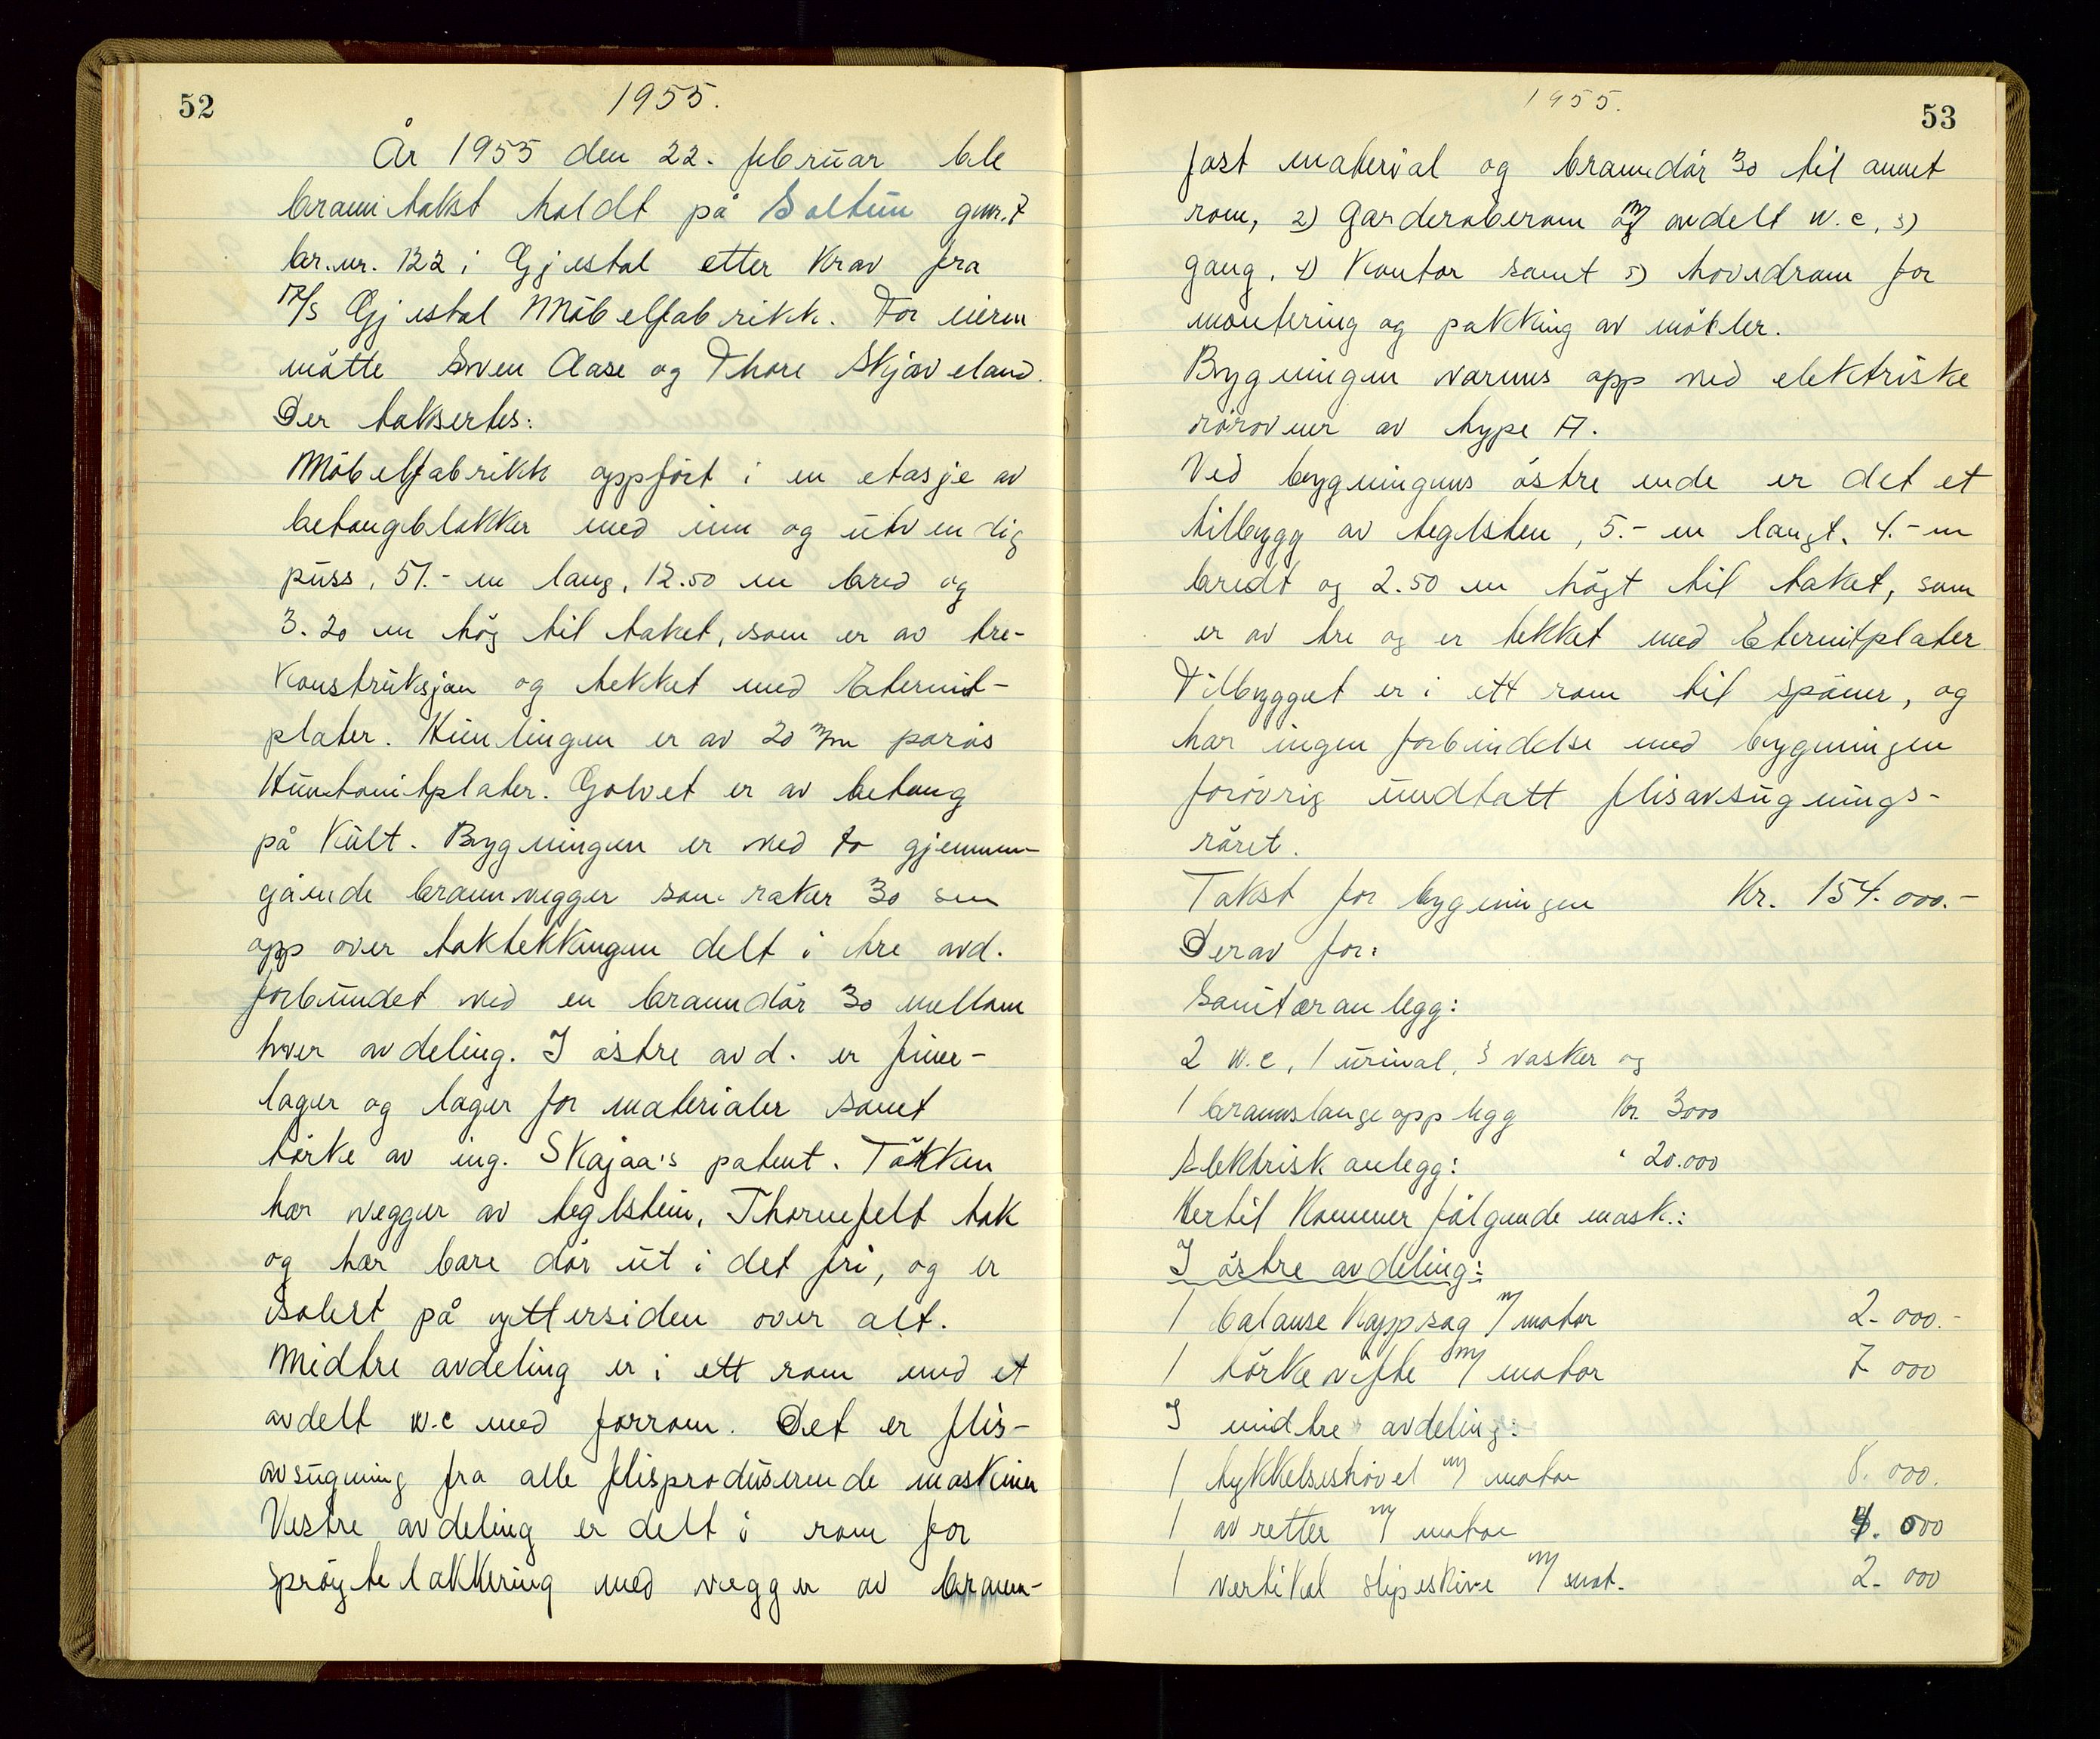 52
1955.
År 1955 den 22. februar ble
branntakst holdt på Soltun gnr. 7
br.nr. 122 i Gjestal etter krav fra
A/S Gjestal Möbelfabrikk. For eieren
mötte Sven Aase og Thore Skjæveland.
Der taksertes:
Möbelfabrikk oppfört i en etasje av
betongblokker med inn og utvendig
puss, 51.- m lang, 12.50 m bred og
3.20 m hög til taket, som er av tre-
konstruksjon og tekket med Eternit-
plater. Himlingen er av 20 m/m porös
Huntonitplater. Golvet er av betong
på kult. Bygningen er ved to gjennom-
gående brannvegger som raker 30 cm
opp over taktekkingen delt i tre avd.
forbundet ved en branndör 30 mellom
hver avdeling. I östre avd. er finer-
lager og lager for materialer samt
törke av ing. Skajaa's patent. Törken
har vegger av teglstein, Thermofelt tak
og har bare dör ut i det fri, og er
isolert på yttersiden over alt.
Midtre avdeling er i ett rom med et
avdelt w.c med forrom. Det er flis-
avsugning fra alle flisproduserende maskiner
Vestre avdeling er delt i rom for
spröytelakkering med vegger av brann-
1955.
53
fast material og branndör 30 til annet
rom, 2) Garderoberom m/ avdelt w.c, 3)
gang, 4) Kontor samt 5) hovedrom for
montering og pakking av möbler.
Bygningen varmes opp ved elektriske
rörovner av type A.
Ved bygningens östre ende er det et
tilbygg av teglsten, 5.- m langt, 4.- m
bredt og 2.50 m högt til taket, som
er av tre og er tekket med Eternitplater
Tilbygget er i ett rom til spöner, og
har ingen forbindelse med bygningen
forövrig undtatt flisavsugnings-
röret.
Takst for bygningen Kr. 154.000.-
Derav for:
Sanitæranlegg:
2 w.c, 1 urinal, 3 vasker og
1 brannslangeopplegg Kr. 3000
Elektrisk anlegg: " 20.000
Hertil kommer fölgende mask.:
I östre avdeling:
1 balanse kappsag m/ motor 2.000.-
1 törkevifte m/ motor 7 000
I midtre avdeling:
1 tykkelseshövel m/ motor 8.000.
1 avretter m/ motor 4.000
1 vertikal slipeskive m/ mot. 2.000